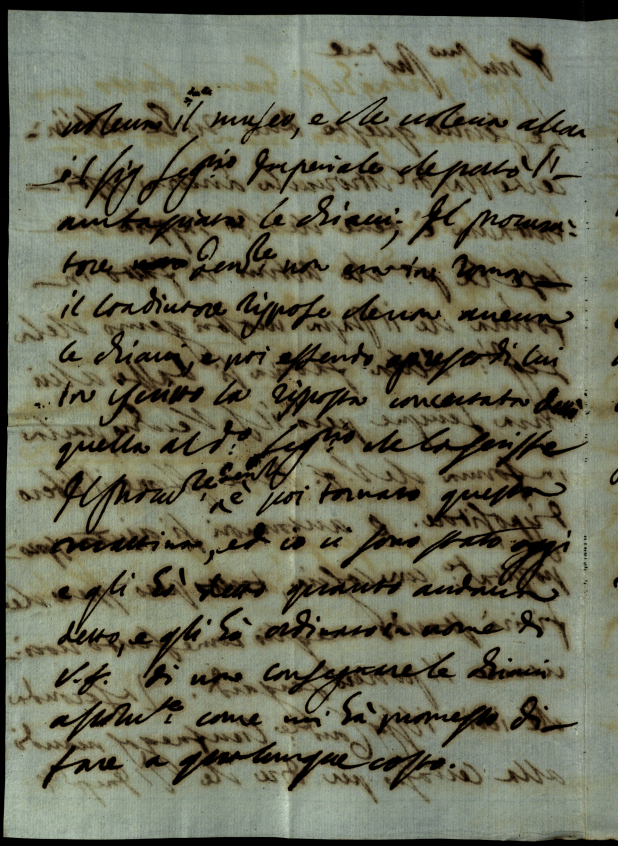 voleva il museo, e che voleva allora
il sig. Seg.rio Imperiale deputò l'
antiquario le chiavi; Il procura=
tore Gen.le non era in Roma
il Coadiutore rispose che non aveva
le chiavi, e poi essendo appresso di lui
in iscritto la risposta concertata
quella al d.o Seg.rio che la scrisse
Il Procu.re Gen.le è poi tornato questa
mattina, ed io ci sono stato oggi
e gli hò detto quanto andava
detto, e gli hà ordinato in nome di
V.S. di non consegnare le chiavi
assolut.e come mi hà promesso di
fare a qualunque costo.